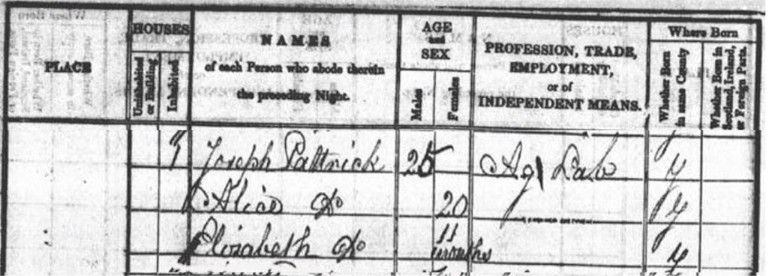 PLACE
HOUSES
Uninhabited or Building
Inhabited
NAMES
of each Person who abode therein
the preceding Night.
AGE
and
SEX
Males
Females
PROFESSION, TRADE,
EMPLOYMENT,
or of
INDEPENDENT MEANS.
Where Born
Whether Born
in same County
Whether Born in
Scotland, Ireland,
or Foreign Parts.
1 Joseph Pattrick 25 Ag Lab y
Alice Do 20 y
Elizabeth Do 11 months y